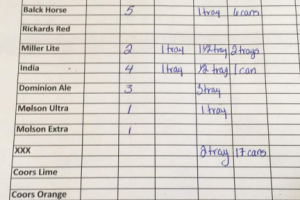 Balck Horse 5 1tray 6 cans
Rickards Red
Miller Lite 2 1tray 1 1/2 tray 2 trays
India 4 1tray 1/2 tray 1 can
Dominion Ale 3 3tray
Molson Ultra 1 1 tray
Molson Extra 1
XXX 2tray 17 cans
Coors Lime
Coors Orange